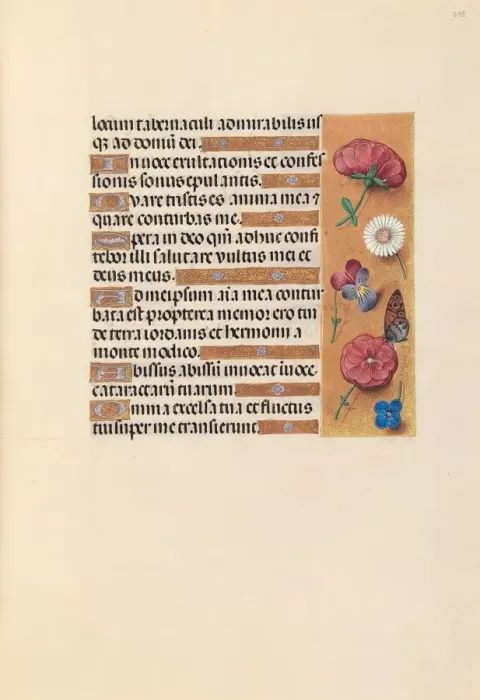 locum tabernaculi admirabilis us
qȝ ad domū dei.
In voce exultationis et confes
sionis sonus epulantis.
Quare tristis es anima mea ⁊
quare conturbas me.
Spera in deo qm̄ adhuc confi
tebor illi salutare vultus mei et
deus meus.
Ad meipsum aīa mea contur
bata est propterea memor ero tui
de terra iordanis et hermonii a
monte modico.
Abissus abissū invocat in voce
cataractarū tuarum.
Omnia excelsa tua et fluctus
tui super me transierunt.